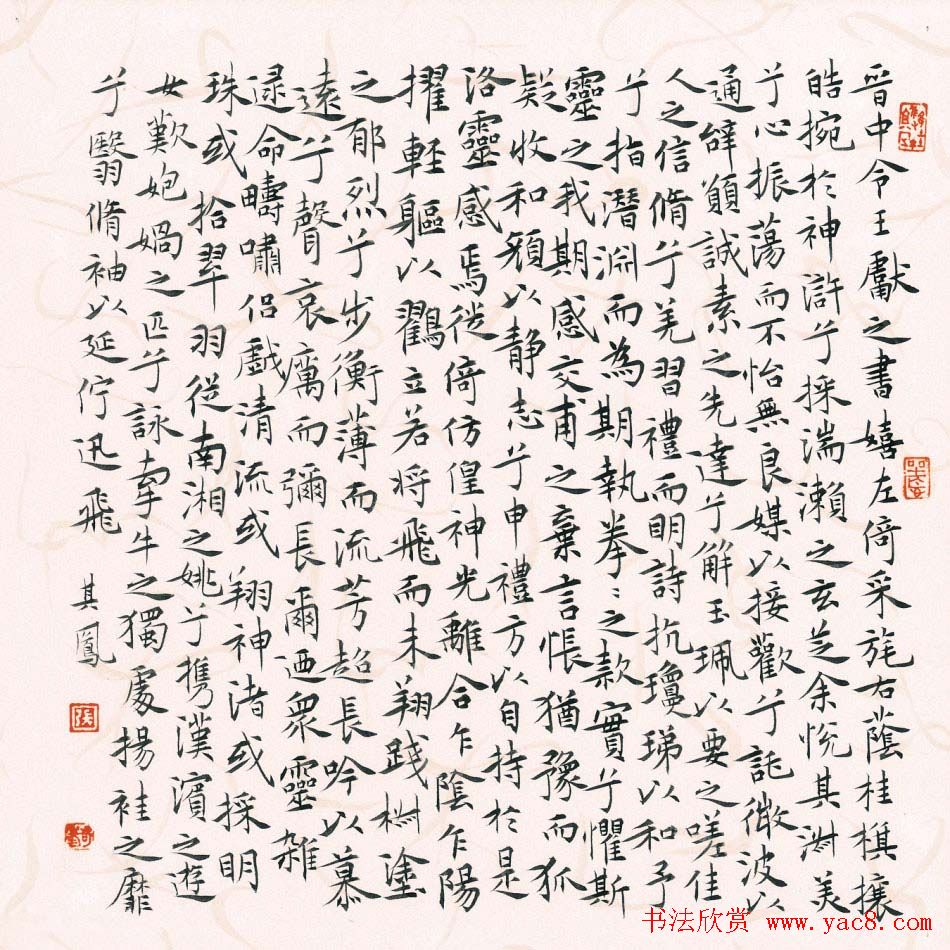 晋中令王獻之書嬉左倚采旄右蔭桂棋攘
皓捥於神滸兮採湍瀨之玄芝余悅其淑美
兮心振蕩而不怡無良媒以接歡兮託微波以
通辭願誠素之先達兮解玉珮以要之嗟佳
人之信脩兮羌習禮而明詩抗瓊珶以和予
兮指潛淵而為期執拳〻之款實兮懼斯
靈之我期感交甫之棄言悵猶豫而狐
疑收和顏以静志兮申禮方以自持於是
洛靈感焉徙倚仿偟神光離合乍陰乍陽
擢輕軀以鸖立若将飛而未翔踐椒塗
之郁烈兮步衡薄而流芳超長吟以慕
遠兮聲哀厲而彌長爾迺眾靈雜
遝命疇嘯侶戲清流或翔神渚或採明
珠或拾翠羽從南湘之姚兮攜漢濱之遊
女歎媧之匹兮詠牽牛之獨處揚袿之靡
兮翳脩袖以延佇迅飛 其鳳
张
书法欣赏 www.yac8.com